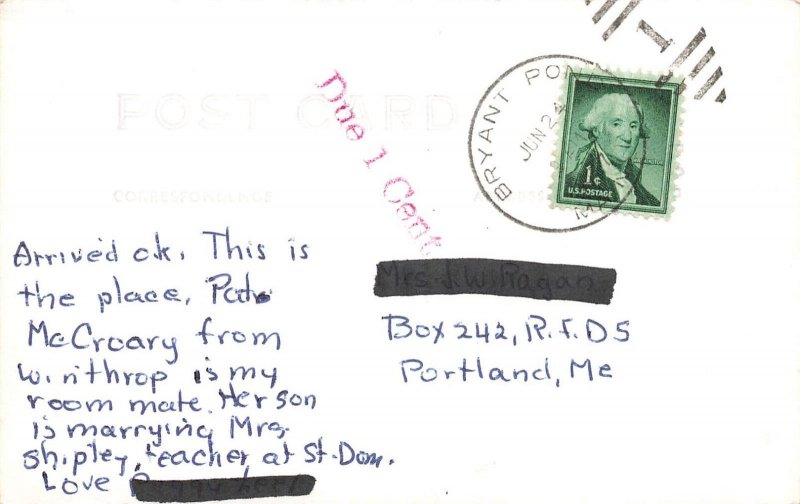 POST CARD
CORRESPONDENCE
Due 1 Cent
BRYANT POND
JUN 24
1
1¢
U.S. POSTAGE
Arrived ok. This is
the place. Pat
McCroary from
Winthrop is my
room mate. Her son
is marrying Mrs.
Shipley, teacher at St. Dom.
Love
Mrs. J.W. Ragan
Box 242, R.F.D 5
Portland, Me